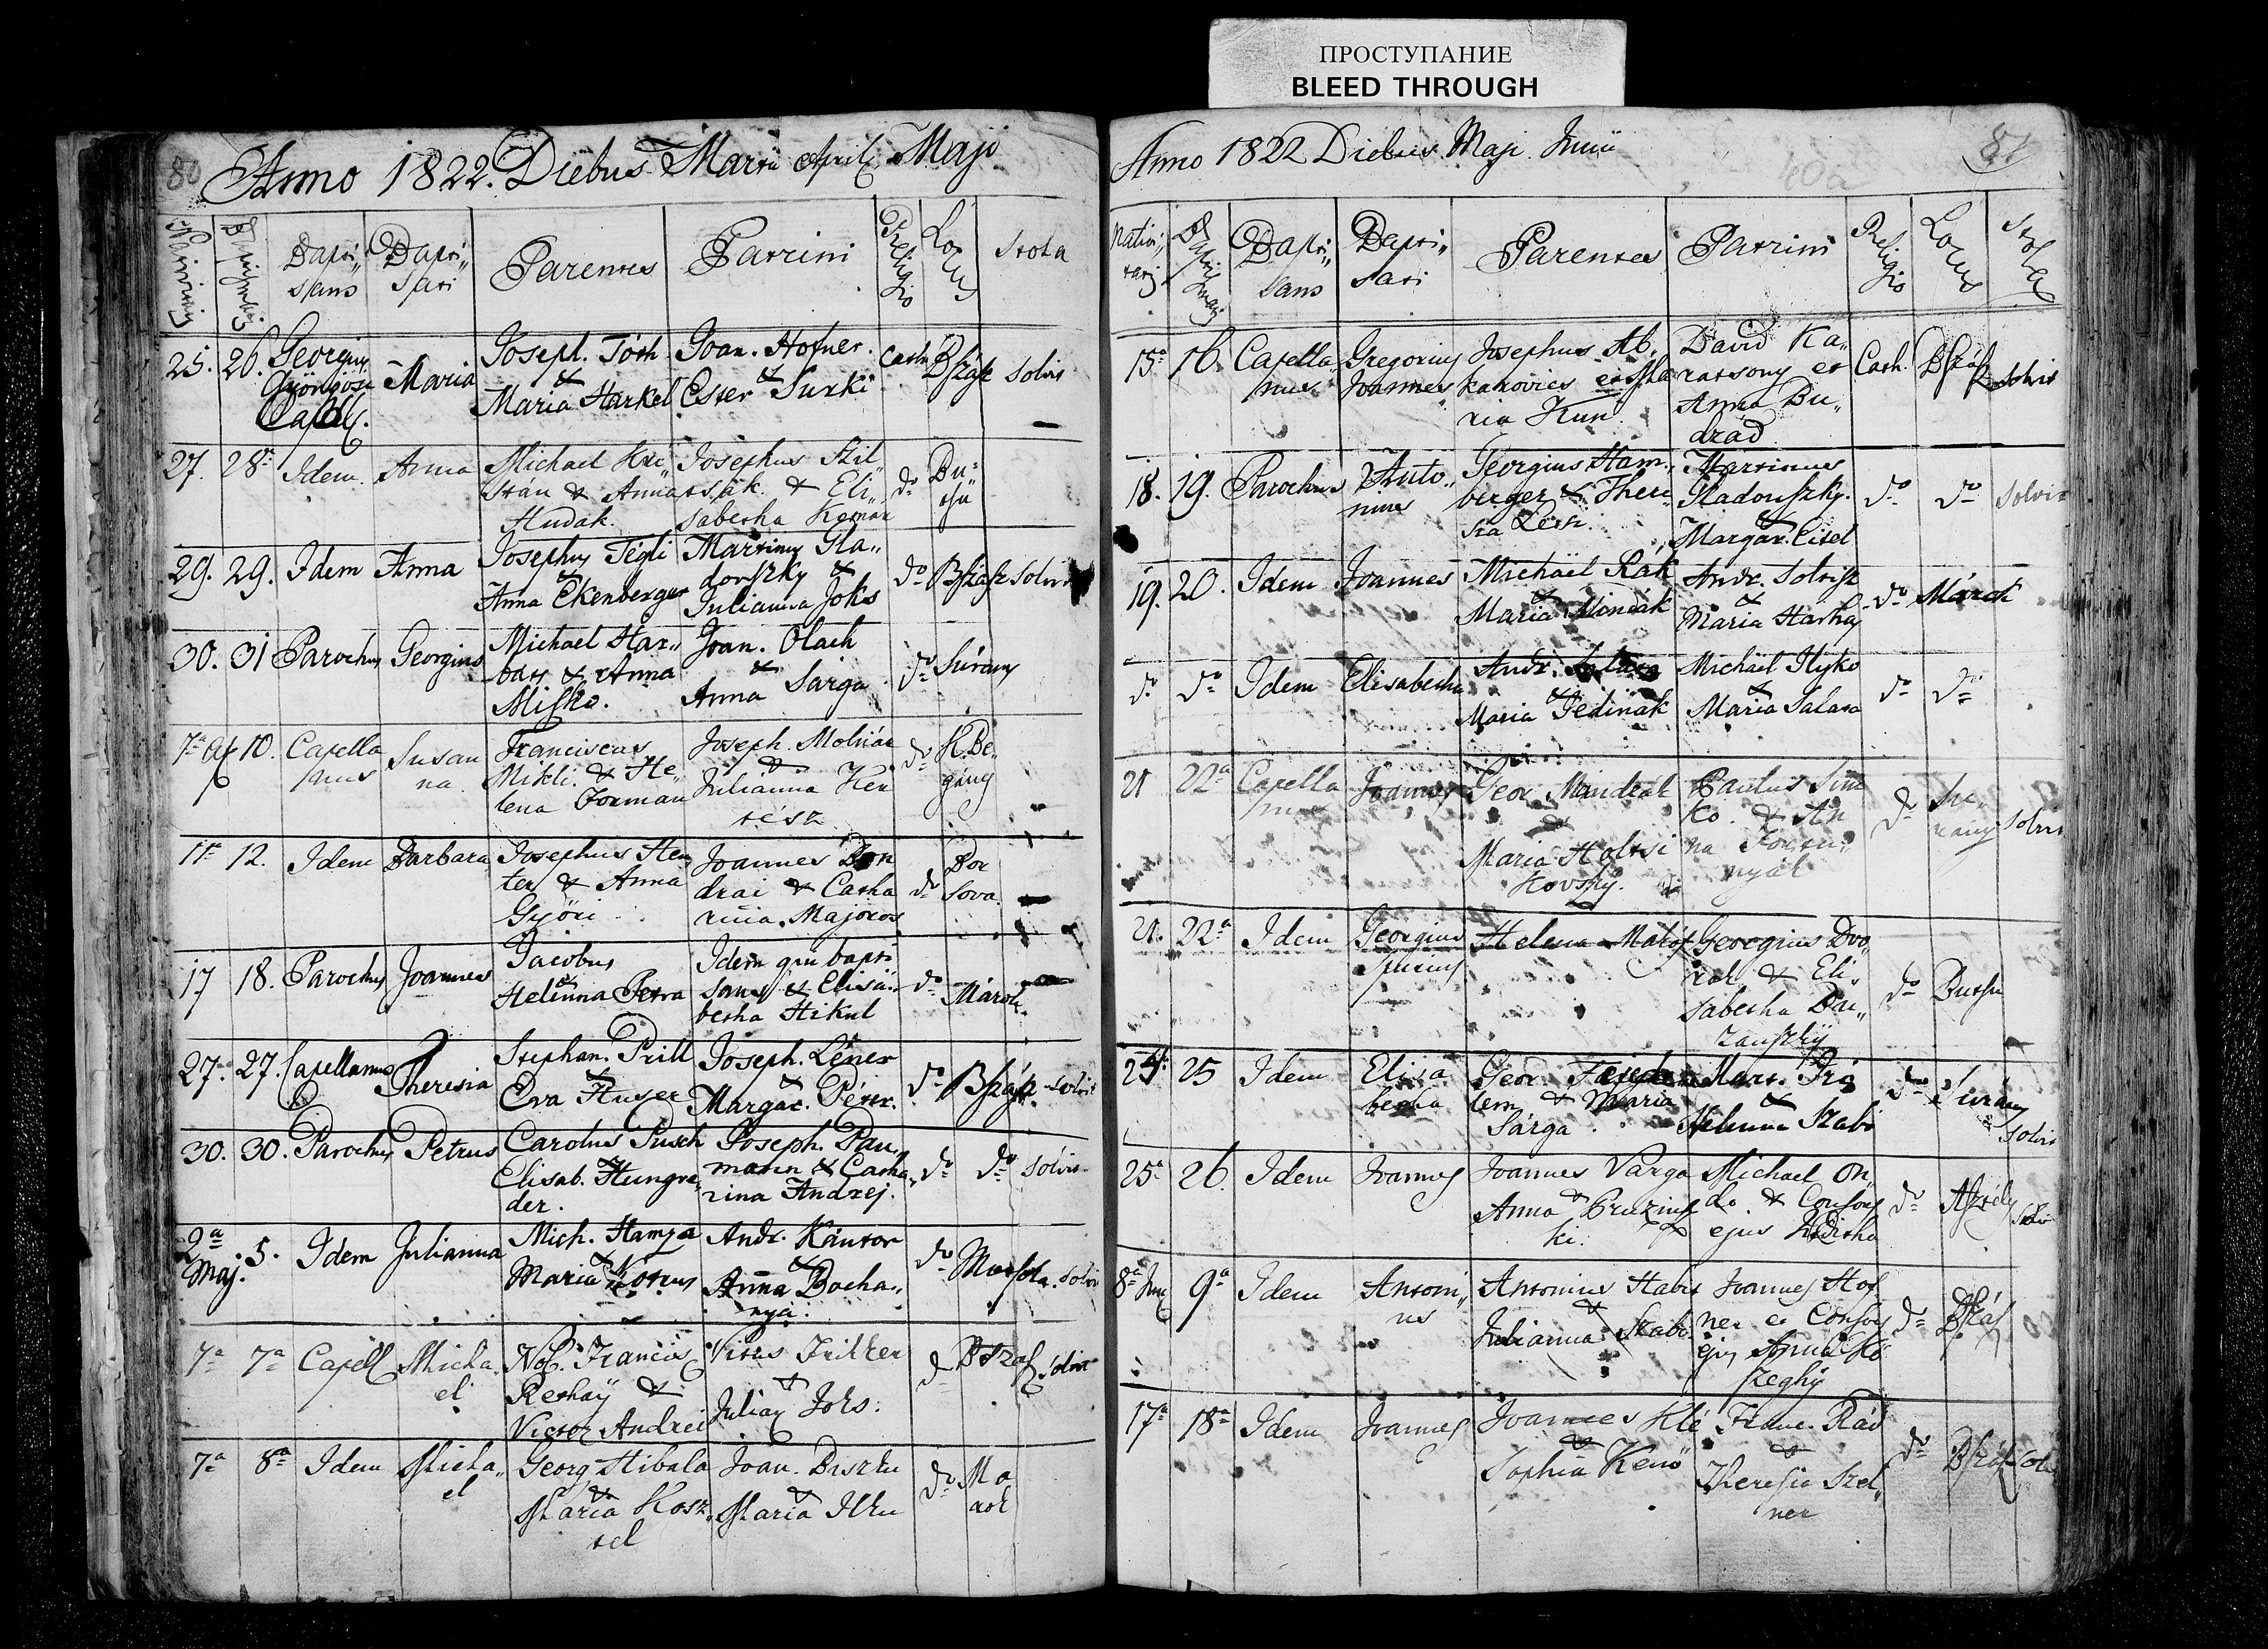 ПРОСТУПАНИЕ
BLEED THROUGH
80
Anno 1822. Diebus Martii Aprili Maji
Bapti„
sans
Bapti„
sati
Parentes
Patrini
Religio
Locus
Stola
25. 26. Georgius
Gyöngyösi
Capell.
Maria
Joseph. Tóth
&
Maria Harkel
Joan. Hofner.
&
Ester Surki
Cath. BSzász solvit
27. 28. Idem. Anna
Michael Kri„
stán & Anna
Hudak.
Josephus Szil„
tsák. & Eli„
sabetha
do Bu„
29. 29. Idem Anna
Josephus Tégli
&
Anna Ekenberger
Martinus Gla„
donszky &
Julianna Joks
do BSzász solvit
30. 31 Parochus Georgius
Michael Har„
& Anna
Misko.
Joan. Olach
&
Anna Sarga
do Surány
7a Ap 10. Capella
nus
Susan
na.
Franciscus
Mikli & He„
lena Forman
Joseph. Molnár
&
Julianna Ker
tész
do K.Be„
gány
11a 12. Idem Barbara
Josephus
& Anna
Győri
Joannes
drai & Catha
rina Majoros
do
sova.
17 18. Parochus Joannes
Jacobus
&
Helenna Petra
Idem qui bapti
sans & Elisa„
betha Hikul
do Márok
27. 27. Capellanus Theresia
Stephan. Prill
&
Eva Huser
Joseph. Léner
&
Margar. Péter.
do BSzász solvit
30. 30. Parochus Petrus
Carolus Pusch
&
Elisab. Hungre„
der.
Joseph. Pau„
mann & Catha„
rina Andrej.
do do solvit
2a
Maj. 5. Idem Julianna
Mich. Hampa
&
Maria Kotrus
Andr. Kántor
&
Anna Bocha„
nya.
do solvit
7a 7a Capell Micha„
el
Nob. Francis
Rethaÿ &
Victor Andrei
Vitus Fritzer
&
Julian Joks.
do BSzász solvit
7a 8a Idem Micha„
el
Georg Hibala
&
Maria Kosz„
tel
Joan. Biszku
&
Maria Ilku
do Ma
rok
Anno 1822 Diebus Maji Junii
40a
81
Nativi„
tatis
Bapti„
sans
Bapti„
sati
Parentes
Patrini
Religio
Locus
Stola
15a 16. Capella
nus
Gregorius
Joannes
Josephus Ab„
kanovics et Ma
ria Kun
David Ka„
ratsony et
Anna Bu„
drád
Cath. BSzász solvit
18. 19. Parochus Anto„
nius
Georgius Ham„
berger & There„
sia Lesn.
Martinus
Gladonszky.
&
Margar. Eisel
do do solvit
19. 20. Idem Joannes
Michael Rák
&
Maria Mondák
Andr.
&
Maria
do Márok
do do Idem Elisabetha
Andr. Salara
&
Maria Fedinák
Michael Ilyko
&
Maria Salara
do do
21 22a Capella
nus
Joannes
Geor Mindrak
&
Maria Holtsi
kovszky.
Paulus Sim
ko. & An
na
nyák
do Su„
rány solvit
21. 22a Idem Georgius
Spurius
Helena Matof
Georgius Dvo„
rak & Eli„
sabetha Bru„
zanszkij
do Butsu
24. 25 Idem Elisa
betha
Geor.
& Maria
Sárga.
Mart.
&
Helenna Szabó
do Surány
solvit
25a 26. Idem Joannes
Joannes Varga
&
Anna Pruzins
ki.
Michael On„
do. & Consors
ejus Editha
do solvit
8a Jun 9a Idem Antoni„
us
Antonius Habit
&
Julianna Szabó.
Joannes Hof
ner et Consors
ejus Anna Kő
szeghy
do BSzás
17a 18a Idem Joannes
Joannes Klé
&
Sophia Kenő
Franc. Rád
&
Theresia Szel„
ner
do BSzász solvit